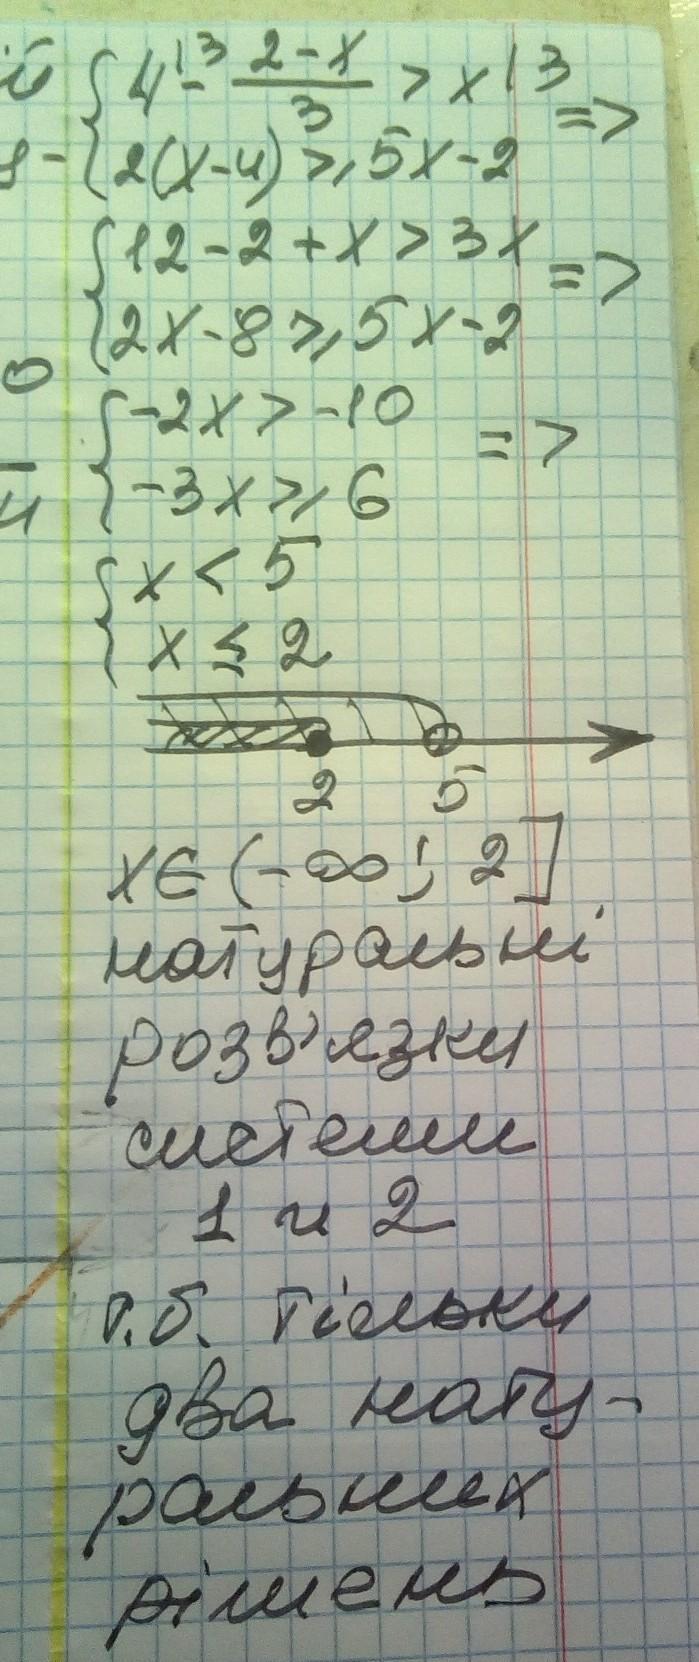 { 4 |·3 - (2-x)/3 > x |·3 =>
2(x-4) ≥ 5x-2
{ 12-2+x > 3x =>
2x-8 ≥ 5x-2
{ -2x > -10 =>
-3x ≥ 6
{ x < 5
x ≤ 2
2 5
xϵ(-∞; 2]
натуральні
розв'язки
системи
1 и 2
т.б. тільки
два нату-
ральних
рішень